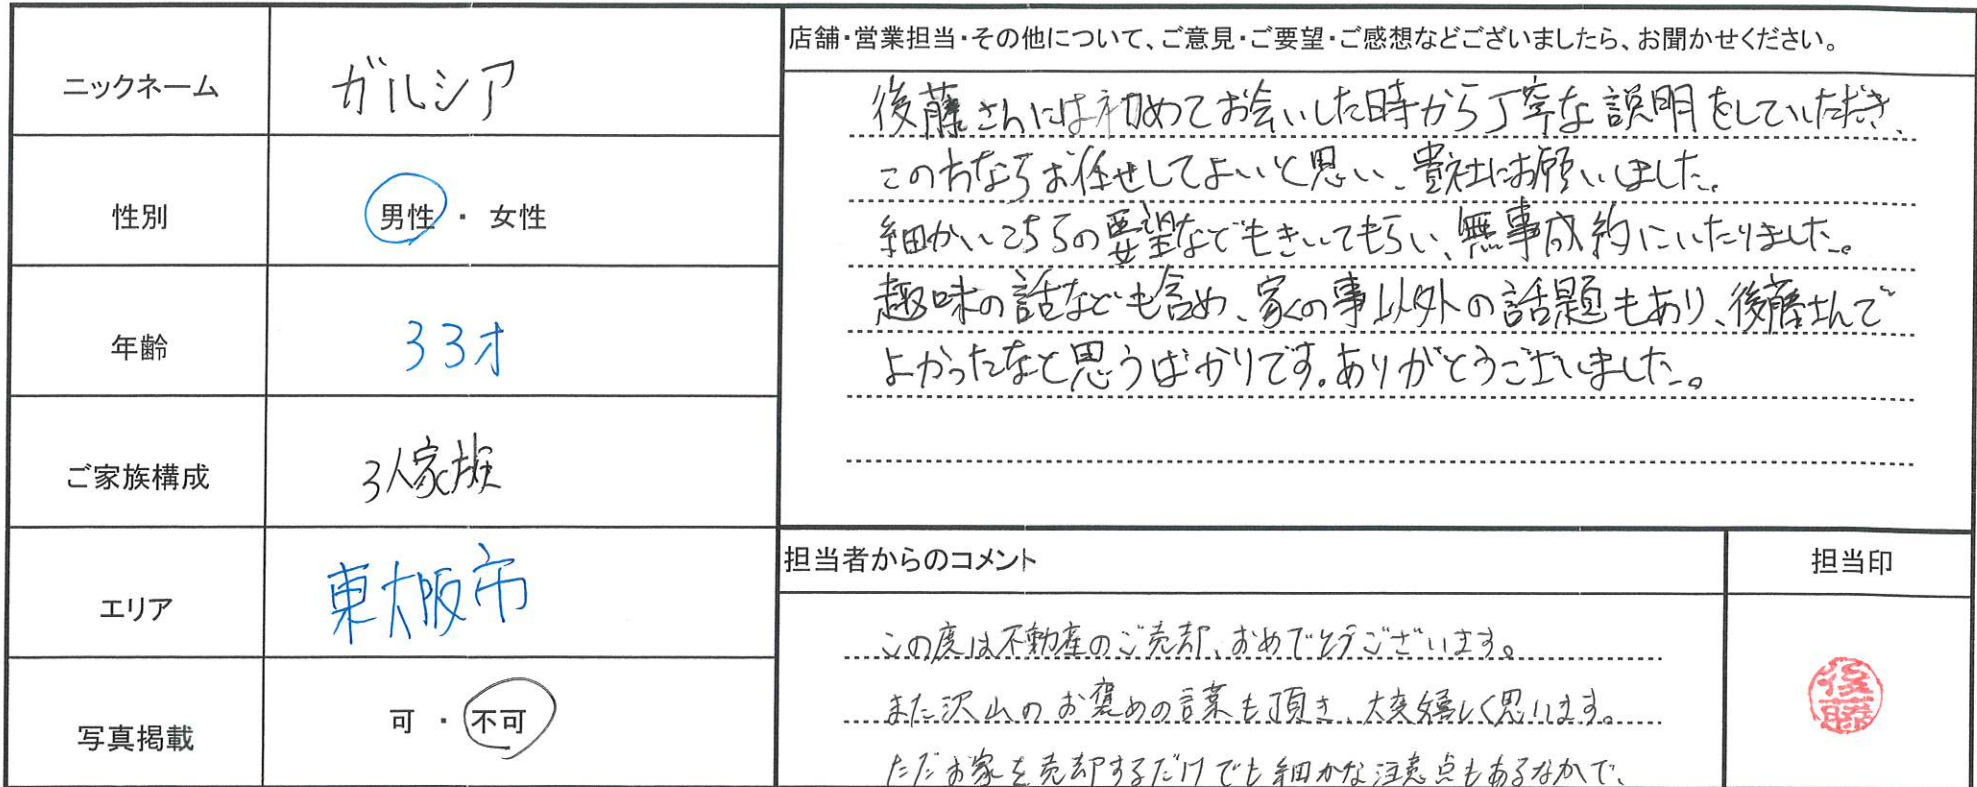 ニックネーム
ガルシア
性別
男性 ・ 女性
年齢
33才
ご家族構成
3人家族
エリア
東大阪市
写真掲載
可 ・ 不可
店舗・営業担当・その他について、ご意見・ご要望・ご感想などございましたら、お聞かせください。
後藤さんには初めてお会いした時から丁寧な説明をしていただき、
この方ならお任せしてよいと思い、貴社にお願いしました。
細かいこちらの要望などもきいてもらい、無事成約にいたりました。
趣味の話なども含め、家の事以外の話題もあり、後藤さんで
よかったなと思うばかりです。ありがとうございました。
担当者からのコメント
この度は不動産のご売却、おめでとうございます。
また沢山のお褒めの言葉も頂き、大変嬉しく思います。
ただお家を売却するだけでも細かな注意点もあるなかで、
担当印
後藤